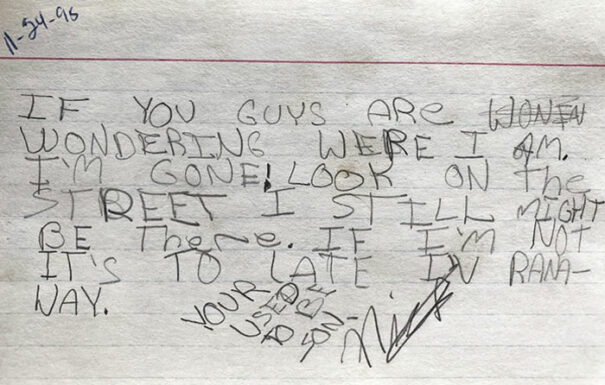 11-24-95
IF YOU GUYS ARE
WONDERING WERE I AM.
I'M GONE! LOOK ON The
STREET I STILL MIGHT
BE There. IF I'M NOT
IT'S TO LATE IV RANA-
WAY.
YOUR
USED
TO BE
SON-
Nick